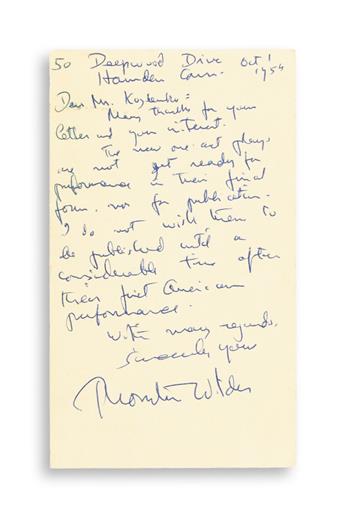 50 Deepwood Drive Oct 1
Hamden Conn. 1954
Dear Mr. Kostenko:
Many thanks for your
letter and your interest.
The new one-act plays
are not yet ready for
performance in their final
form, nor for publication.
I do not wish them to
be published until a
considerable time after
their first American
performance.
With many regards,
Sincerely yours
Thornton Wilder